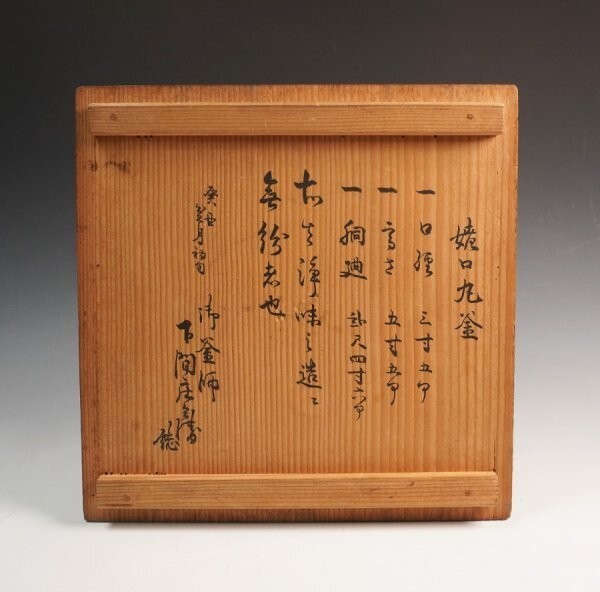 姥口丸釜
一 口径 三寸五分
一 高さ 五寸五分
一 胴廻 貳尺四寸六分
右 浄味之造ニ
無紛者也
癸丑
月初旬
御釜師
下間庄兵衛
誌